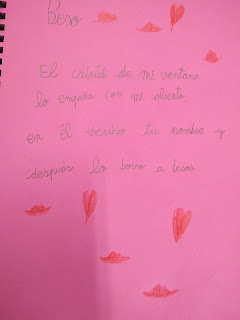 Beso
El cristal de mi ventana
lo empaño con mi aliento,
en él escribo tu nombre y
después lo borro a besos.